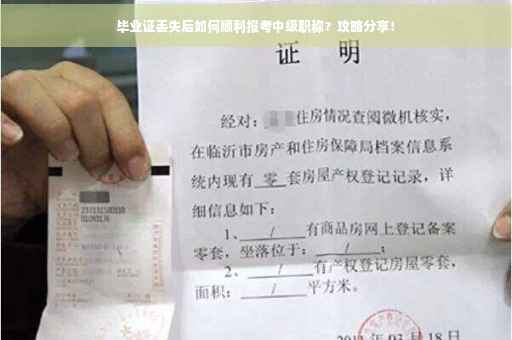 毕业证丢失后如何顺利报考中级职称？攻略分享！
证 明
经对：住房情况查阅微机核实，
在临沂市房产和住房保障局档案信息系
统内现有 零 套房屋产权登记记录，详
细信息如下：
1、 / 有商品房网上登记备案
零套，坐落位于： / ；
2、 / 有产权登记房屋零套，
面积： / 平方米。
03月18日